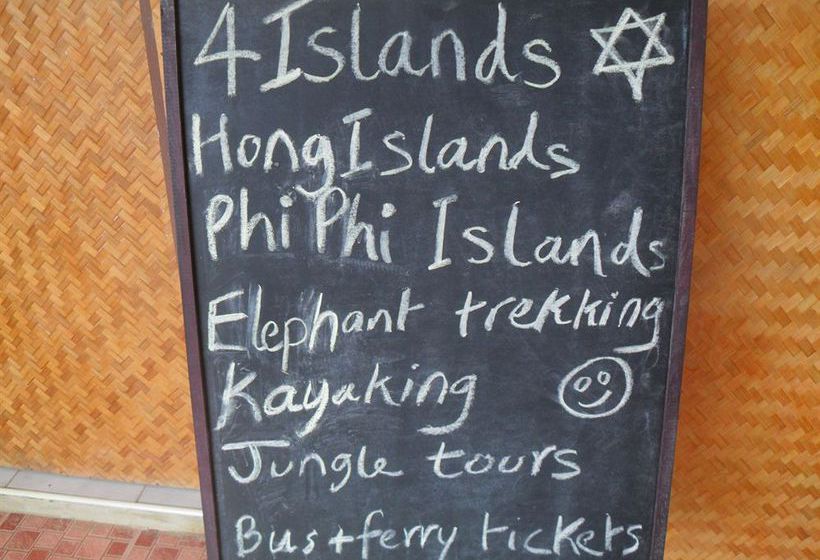 4 Islands
Hong Islands
Phi Phi Islands
Elephant trekking
Kayaking
Jungle tours
Bus + ferry tickets